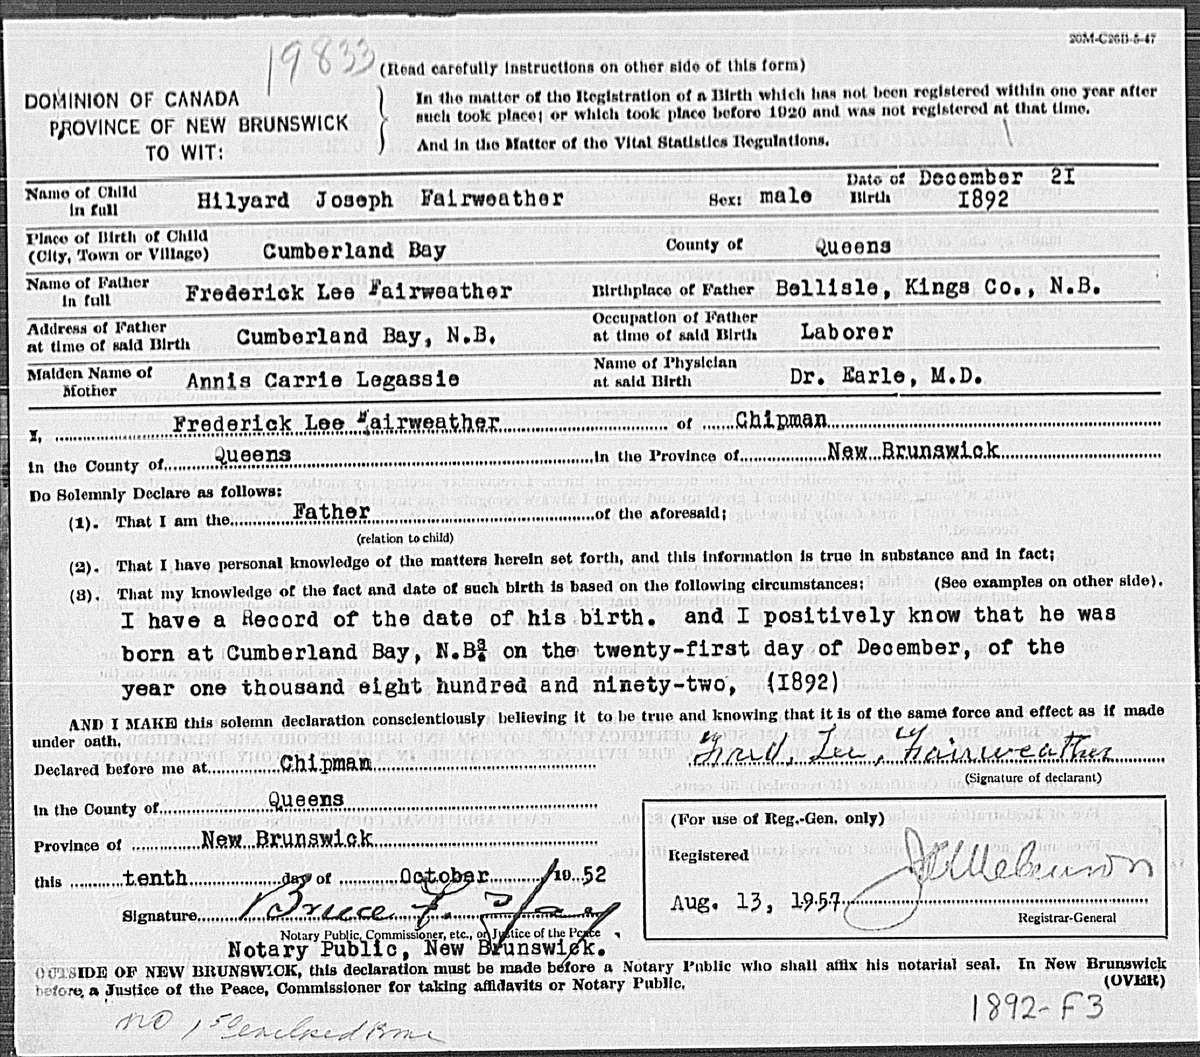 20M-C26B-5-47
19833
(Read carefully instructions on other side of this form)
DOMINION OF CANADA
PROVINCE OF NEW BRUNSWICK
TO WIT:
In the matter of the Registration of a Birth which has not been registered within one year after
such took place; or which took place before 1920 and was not registered at that time.
And in the Matter of the Vital Statistics Regulations.
Name of Child in full Hilyard Joseph Fairweather Sex: male Date of Birth December 21 1892
Place of Birth of Child (City, Town or Village) Cumberland Bay County of Queens
Name of Father in full Frederick Lee Fairweather Birthplace of Father Bellisle, Kings Co., N.B.
Address of Father at time of said Birth Cumberland Bay, N.B. Occupation of Father at time of said Birth Laborer
Maiden Name of Mother Annis Carrie Legassie Name of Physician at said Birth Dr. Earle, M.D.
I, Frederick Lee Fairweather of Chipman
in the County of Queens in the Province of New Brunswick
Do Solemnly Declare as follows:
(1). That I am the Father of the aforesaid;
(relation to child)
(2). That I have personal knowledge of the matters herein set forth, and this information is true in substance and in fact;
(3). That my knowledge of the fact and date of such birth is based on the following circumstances: (See examples on other side).
I have a Record of the date of his birth. and I positively know that he was
born at Cumberland Bay, N.B. on the twenty-first day of December, of the
year one thousand eight hundred and ninety-two, (1892)
AND I MAKE this solemn declaration conscientiously believing it to be true and knowing that it is of the same force and effect as if made
under oath.
Fred, Lee, Fairweather
(Signature of declarant)
Declared before me at Chipman
in the County of Queens
Province of New Brunswick
this tenth day of October 1952
Signature Bruce F.
Notary Public, Commissioner, etc., or Justice of the Peace
Notary Public, New Brunswick.
(For use of Reg.-Gen. only)
Registered
Aug. 13, 1957
Registrar-General
OUTSIDE OF NEW BRUNSWICK, this declaration must be made before a Notary Public who shall affix his notarial seal. In New Brunswick
before, a Justice of the Peace, Commissioner for taking affidavits or Notary Public.
(OVER)
1892-F3